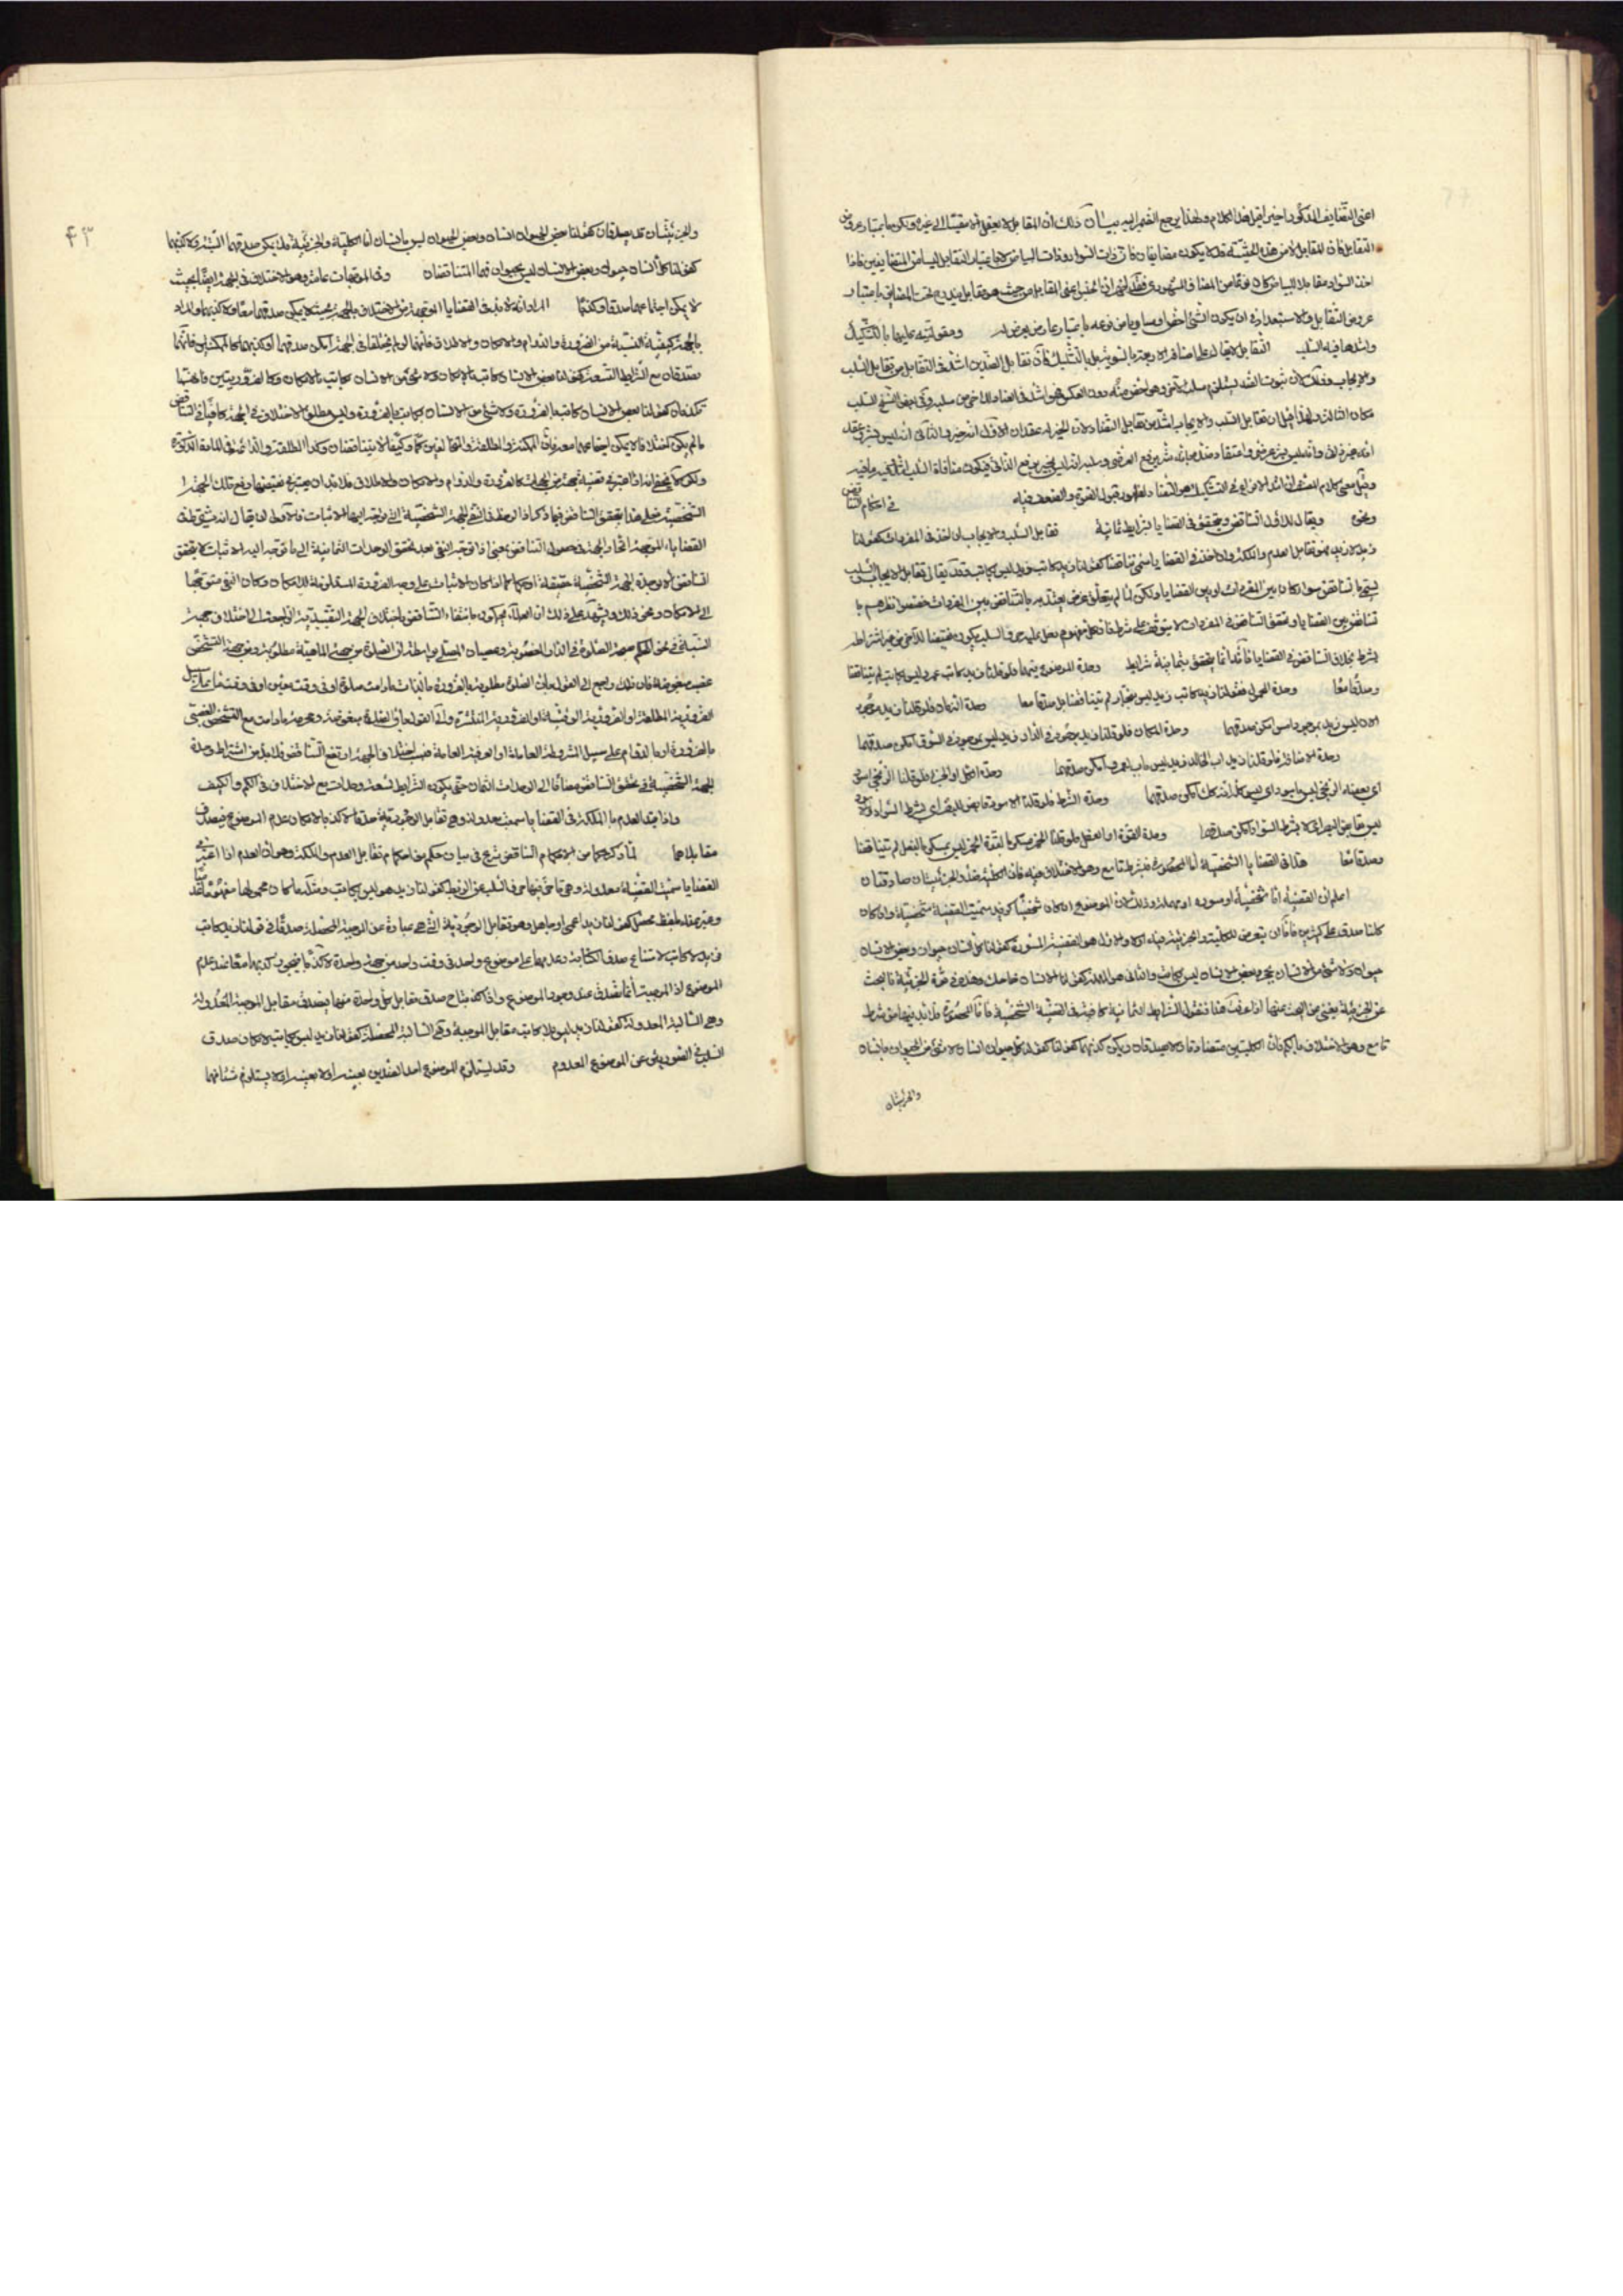 اعنى التضايف المذكور اخيرا في هذا الكلام ولهذا يرجع الضمير اليه بيان ذلك ان المقابل لا يعقل الا مقيسا الى غيره ولكن باعتبار عروض
التقابل فان المقابل لا من هذه الحيثية قد لا يكون مضايفا فان ذات السواد وذات البياض لا باعتبار التقابل ليسا من المتضايفين فاذا
اخذ السواد مقابلا للبياض كان نوعا من المضاف المشهورى فقد اعنى المقابل من حيث هو مقابل مندرج تحت المضايف باعتبار
عروض التقابل ولا استبعاد في ان يكون الشئ اخص او مساويا من نوعه باعتبار عارض يعرض له ومقوليته عليها بالتشكيك
واشدها فيه السلب التقابل لا يقال على اصنافه الاربعة بالسوية بل بالتشكيك فان تقابل الضدين اشد في التقابل من تقابل السلب
والايجاب وذلك لان ثبوت الضد يستلزم سلب الآخر وهو اخص منه دون العكس فهو اشد في العناد للآخر من سلبه وفى بعض النسخ السلب
مكان الثالث ولهذا قيل ان تقابل السلب والايجاب اشد من تقابل التضاد لان الخير له عقدان الاول انه خير والثانى انه ليس بشر وعقد
انه خير ذاتى وانه ليس بشر عرضى واعتقاد رافع العرضى وسلبه انه ليس بخير رافع الذاتى فيكون منافاة السلب
وقيل معنى كلام المصنف ان اشد الانواع في التشكيك هو التضاد لقبول القوة والضعف فيه في احكام التناقض
ونحوه ويقال للاول التناقض ويتحقق في القضايا بشرايط ثمانية تقابل السلب والايجاب ان اخذ في المفردات كقولنا
زيد لا زيد فهو تقابل العدم والملكة وان اخذ في القضايا يسمى تناقضا كقولنا زيد كاتب زيد ليس بكاتب وقد يقال تقابل الايجاب والسلب
يسمى بالتناقض سواء كان بين المفردات او بين القضايا ولكن لما لم يتعلق غرض يعتد به بالتناقض بين المفردات خصصوا نظرهم با
لتناقض بين القضايا وتحقق التناقض في المفردات لا يتوقف على شرط فان كل مفهوم دخل عليه حرف السلب يكون نقيضا للآخر من غير اشتراط
بشرط بخلاف التناقض في القضايا فانه انما يتحقق بثمانية شرايط وحدة الموضوع فيهما فلو قلنا زيد كاتب عمرو ليس بكاتب لم يتناقضا
وصدقا معا وحدة المحمول فقولنا زيد كاتب زيد ليس بنجار لم يتناقضا بل صدقا معا وحدة الزمان فلو قلنا زيد موجود
الان ليس زيد بموجود امس امكن صدقهما وحدة المكان فلو قلنا زيد موجود في الدار زيد ليس بموجود في السوق امكن صدقهما
وحدة الاضافة فلو قلنا زيد اب لخالد زيد ليس باب لعمرو امكن صدقهما وحدة الكل او الجزء فلو قلنا الزنجى اسود
اى بعضه الزنجى ليس باسود اى ليس كل اجزائه كك امكن صدقهما وحدة الشرط فلو قلنا الاسود قابض للبصر اى بشرط السواد والاسود
ليس بقابض للبصر اى لا بشرط السواد امكن صدقهما وحدة القوة او الفعل فلو قلنا الخمر مسكر بالقوة الخمر ليس بمسكر بالفعل لم يتناقضا
وصدقا معا هذا في القضايا الشخصية اما المحصورة فبشرط تاسع وهو الاختلاف فيه فان الكلية ضد والجزئيتان صادقتان
اعلم ان القضية اما شخصية او مسورة او مهملة وذلك لان الموضوع ان كان شخصيا كزيد سميت القضية شخصية وان كان
كليا صدق على كثيرين فاما ان يتعرض للكلية والجزئية فيه او لا والاول هو القضية المسورة كقولنا كل انسان حيوان وبعض الانسان
حيوان ولا شئ من الانسان بحجر وبعض الانسان ليس بكاتب والثانى هو المهملة كقولنا الانسان ضاحك وهذه في قوة الجزئية فالبحث
عن الجزئية يغنى عن البحث عنها اذا عرفت هذا فنقول الشرايط الثمانية كافية في القضية الشخصية فاما المحصورة فلا بد فيها من شرط
تاسع وهو الاختلاف بالكم فان الكليتين متضادتان لا يصدقان ويمكن كذبهما كقولنا كل حيوان انسان ولا شئ من الحيوان بانسان
والجزئيتان
۴۳
والجزئيتان قد يصدقان كقولنا بعض الحيوان انسان وبعض الحيوان ليس بانسان اما الكلية والجزئية فلا يمكن صدقهما البتة ولا كذبهما
كقولنا كل انسان حيوان وبعض الانسان ليس بحيوان فهما المتناقضان وفى الموجهات عاشر وهو الاختلاف في الجهة ايضا بحيث
لا يمكن اجتماعهما صدقا وكذبا المراد انه لا بد في القضايا الموجهة من الاختلاف بالجهة بحيث لا يمكن صدقهما معا ولا كذبهما والمراد
بالجهة كيفية النسبة من الضرورة والدوام والامكان والاطلاق فانهما لو لم يختلفا في الجهة امكن صدقهما او كذبهما كالممكنتين فانهما
يصدقان مع الشرايط التسعة كقولنا بعض الانسان كاتب بالامكان ولا شئ من الانسان بكاتب بالامكان وكالضروريتين فانهما
تكذبان كقولنا بعض الانسان كاتب بالضرورة ولا شئ من الانسان بكاتب بالضرورة وليس مطلق الاختلاف في الجهة كافيا في التناقض
ما لم يكن اختلافا لا يمكن اجتماعهما معه فان الممكنة والمطلقة المتخالفتين كما وكيفا لا يتناقضان وكذا المطلقة والدائمة
ولكن لا يخفى انه اذا اعتبر في قضية جهة من الجهات كالضرورة والدوام والامكان والاطلاق فلا بد ان يعتبر في نقيضها رفع تلك الجهة
الشخصية فعلى هذا يتحقق التناقض فيما ذكر اذا لوحظ في النفى الجهة الشخصية التى توجه اليها الاثبات فالاولى ان يقال انه يشترط في
القضايا الموجهة اتحاد الجهة في حصول التناقض بمعنى اذا توجه النفى بعد تحقق الوحدات الثمانية الى ما توجه اليه الاثبات لا يتحقق
التناقض الا بوحدة الجهة الشخصية حقيقة او حكما كما اذا كان الاثبات على وجه الضرورة المساوقة للامكان وكان النفى متوجها
الى الامكان ونحو ذلك ويشهد على ذلك ان العلماء يحكمون بانتفاء التناقض باختلاف الجهة التقييدية الراجعة الى اختلاف جهة
النسبة في نحو الحكم بصحة الصلوة في الدار المغصوبة وعصيان المصلى بواسطة ان الصلوة من جهة الماهية مطلوبة ومن جهة التشخص
غصب مبغوضة فان ذلك راجع الى القول بان الصلوة مطلوبة بالضرورة بالذات ما دامت صلوة او في وقت معين او في وقت ما على سبيل
الضرورية المطلقة او الضرورية الوقتية او الضرورية المنتشرة والى القول بان الصلوة مبغوضة ومحرمة ما دامت مع التشخص الغصبى
بالضرورة او بالدوام على سبيل المشروطة العامة او العرفية العامة فبسبب اختلاف الجهة ارتفع التناقض فلا بد من اشتراط وحدة
الجهة الشخصية في تحقق التناقض مضافا الى الوحدات الثمان حتى يكون الشرايط تسعة وحدات مع الاختلاف في الكم والكيف
واذا قيد العدم بالملكة في القضايا سميت معدولة وهى تقابل الوجودية صدقا لا كذبا لامكان عدم الموضوع فيصدق
مقابلاهما لما ذكر حكما من احكام التناقض شرع في بيان حكم من احكام تقابل العدم والملكة وهو ان العدم اذا اعتبر في
القضايا سميت القضية معدولة وهى ما تأخر فيها حرف السلب عن الربط كقولنا زيد هو ليس بكاتب ومثله ما كان محمولها مفهوما عدميا
وعبر عنه بلفظ محصل كقولنا زيد اعمى او جاهل وهو تقابل الوجودية التى هى عبارة عن الموجبة المحصلة صدقا في قولنا زيد كاتب
زيد لا كاتب لامتناع صدق الكتابة وعدمها على موضوع واحد في وقت واحد من جهة واحدة لا كذبا فيجوز كذبهما معا عند عدم
الموضوع اذ الموجبة انما تصدق عند وجود الموضوع واذا كذبتا صدق مقابل كل واحدة منهما فيصدق مقابل الموجبة المعدولة
وهى السالبة المعدولة كقولنا زيد ليس بلا كاتب ومقابل الموجبة وهى السالبة المحصلة كقولنا زيد ليس بكاتب لامكان صدق
السلب في الصورتين عن الموضوع المعدوم وقد يستلزم الموضوع احد الضدين بعينه او لا بعينه او لا يستلزم شيئا منهما